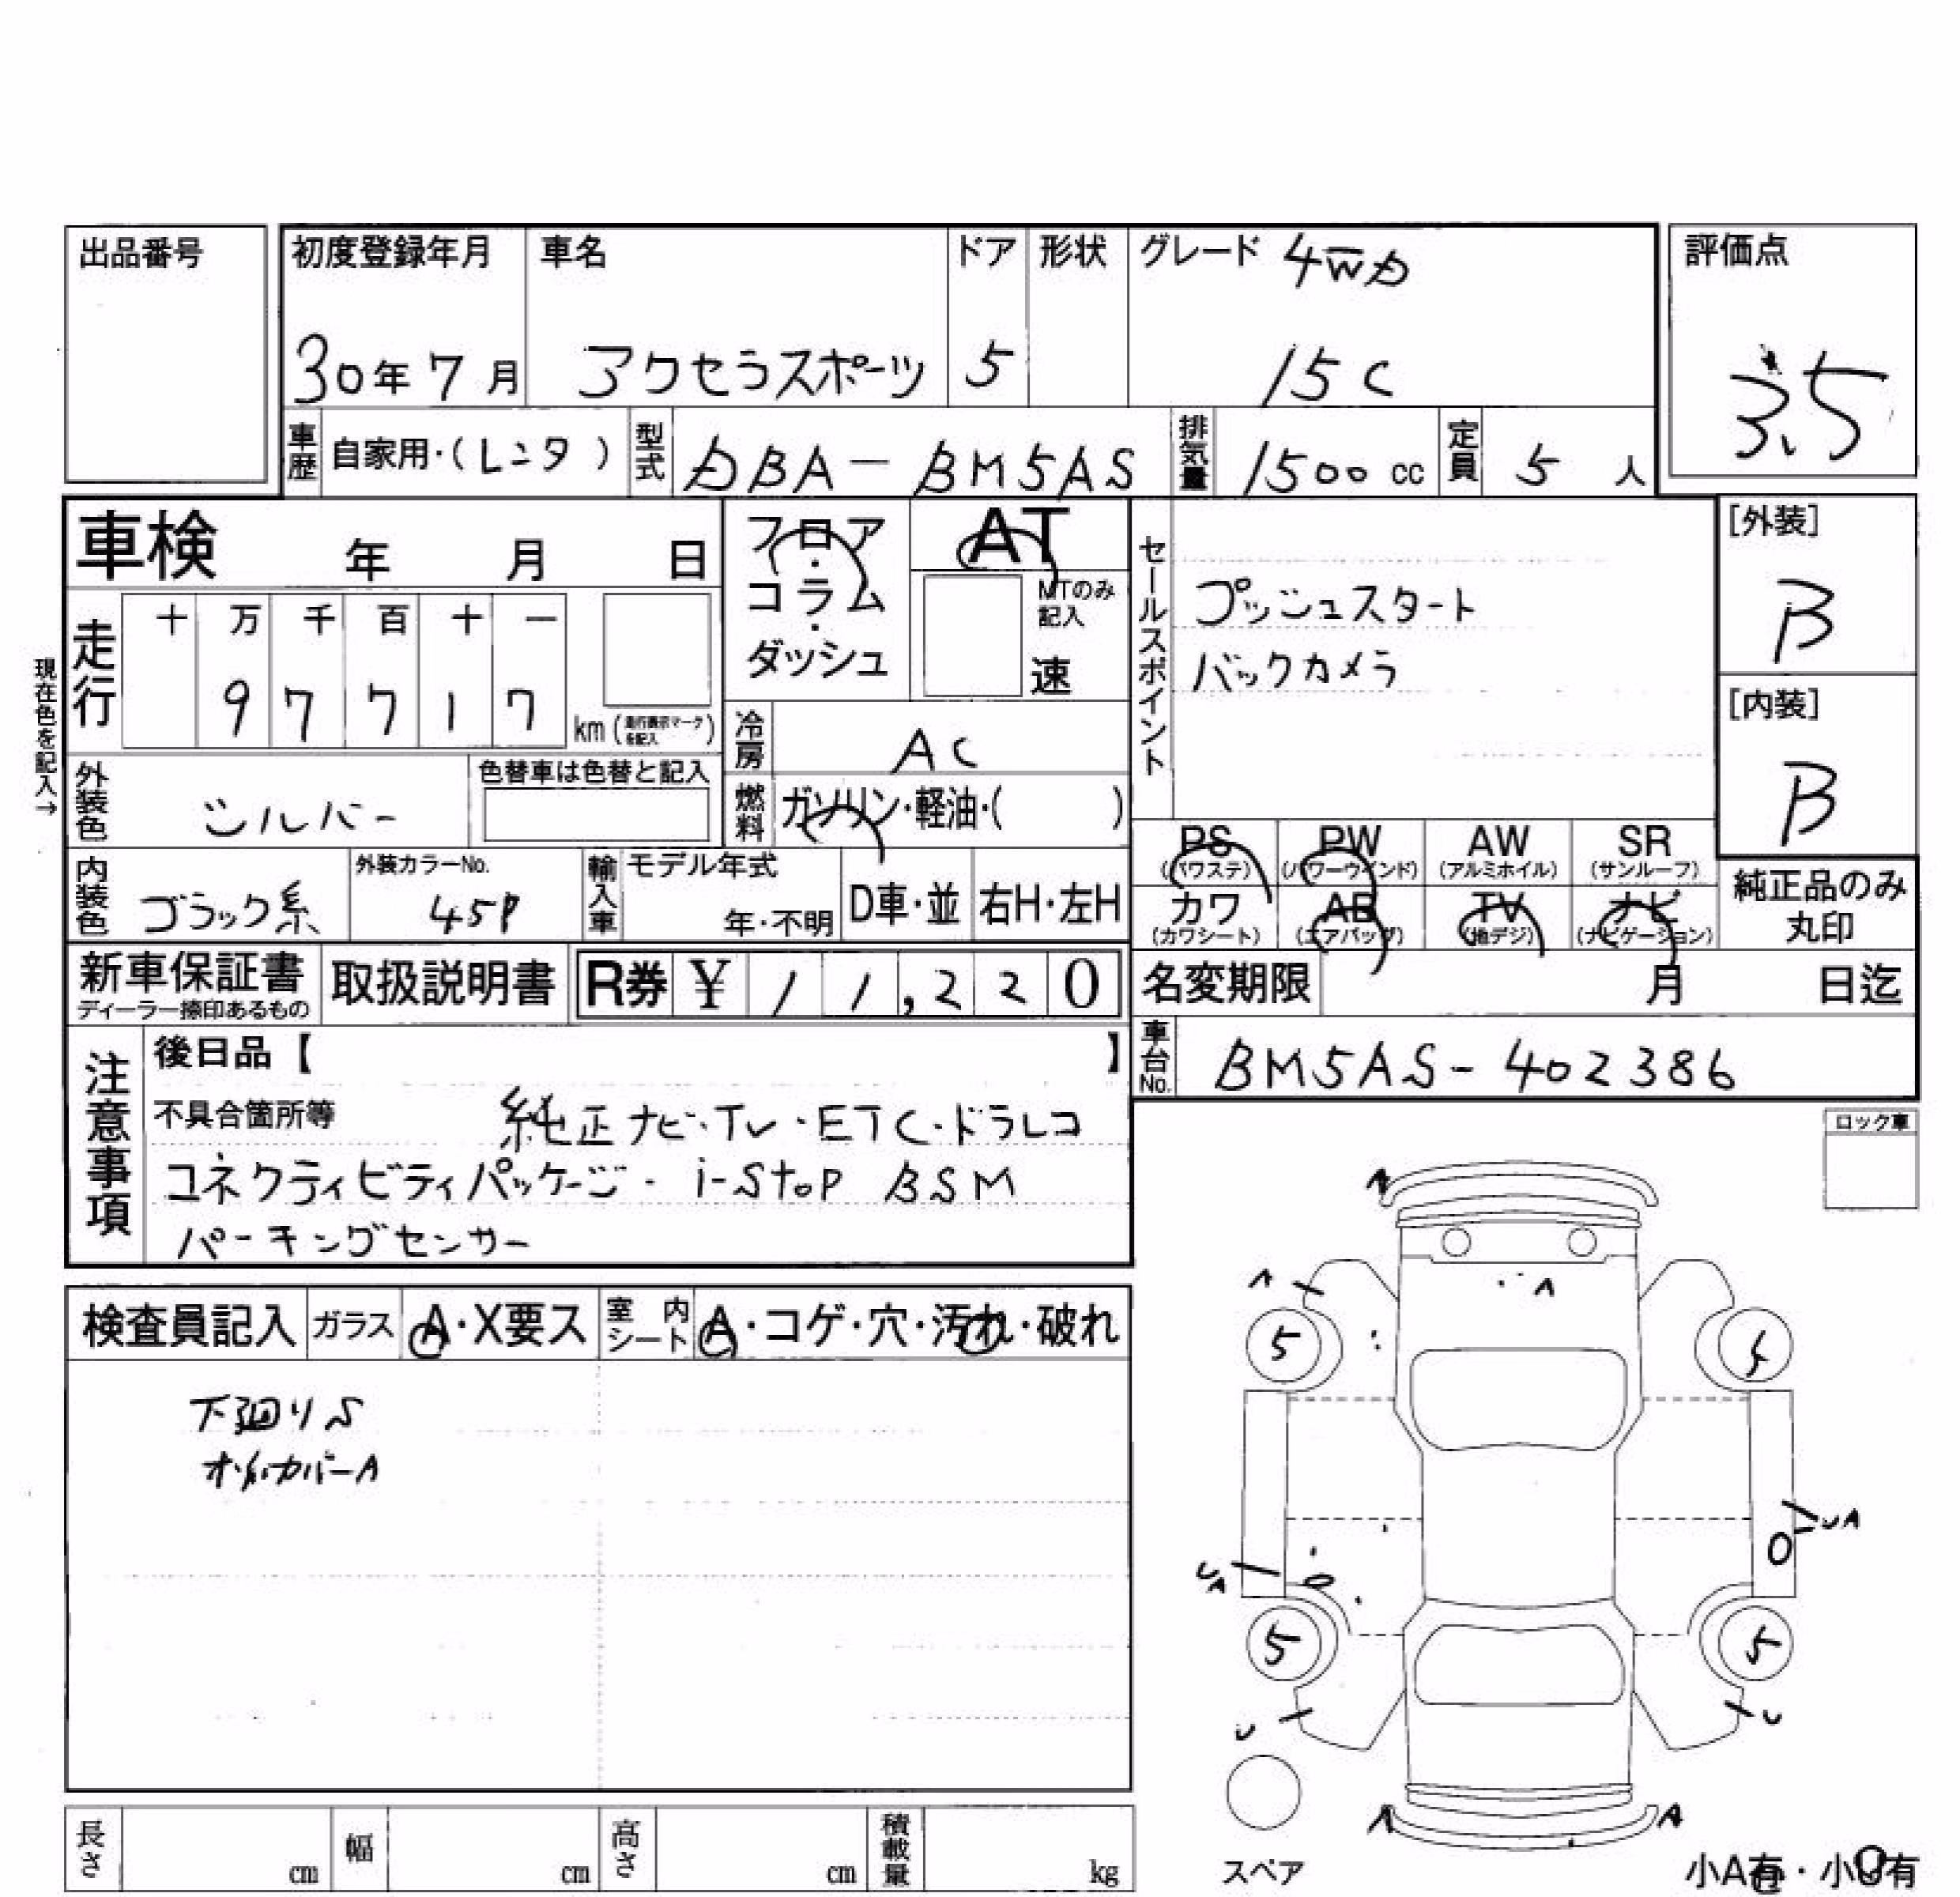 出品番号
初度登録年月 車名 ドア 形状 グレード 4WD 評価点
30年7月 アクセラスポーツ 5 15C 3.5
車歴 自家用・(レンタ) 型式 DBA-BM5AS 排気量 1500cc 定員 5人
車検 年 月 日 フロア・コラム・ダッシュ AT
MTのみ記入 速
セールスポイント
プッシュスタート
バックカメラ
[外装]
B
[内装]
B
現在色を記入→
走行 十 万 千 百 十 一
9 7 7 1 7 km(走行表示マークを記入)
冷房 AC
外装色 シルバー 色替車は色替と記入
燃料 ガソリン・軽油・( )
PS(パワステ) PW(パワーウインド) AW(アルミホイル) SR(サンルーフ)
カワ(カワシート) AB(エアバッグ) TV(地デジ) ナビ(ナビゲーション)
純正品のみ丸印
内装色 ブラック系 外装カラーNo. 45P 輸入車 モデル年式 年・不明 D車・並 右H・左H
新車保証書 ディーラー捺印あるもの 取扱説明書 R券 ¥11,220 名変期限 月 日迄
車台No. BM5AS-402386
注意事項
後日品【 】
不具合箇所等 純正ナビ・TV・ETC・ドラレコ
コネクティビティパッケージ・ i-stop BSM
パーキングセンサー
ロック車
検査員記入 ガラス A・X要ス 室内シート A・コゲ・穴・汚れ・破れ
下廻りS
カバーA
A
A A
5 5
UA
UA
5 5
U U
A A
長さ cm 幅 cm 高さ cm 積載量 kg
スペア
小A有・小U有